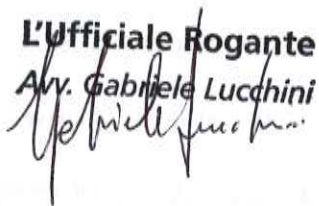 L'Ufficiale Rogante
Avv. Gabriele Lucchini
Gabriele Lucchini